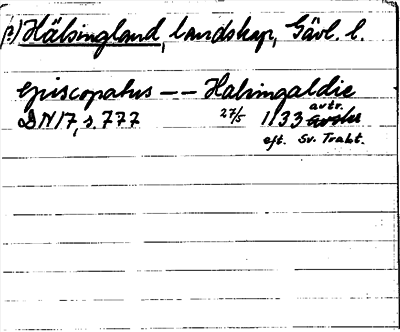 (?) Hälsingland, landskap, Gävl. l.
Episcopatus -- Halsingaldie
DN 17, s. 777 27/5 1133 avtr.
eft. Sv. Trakt.